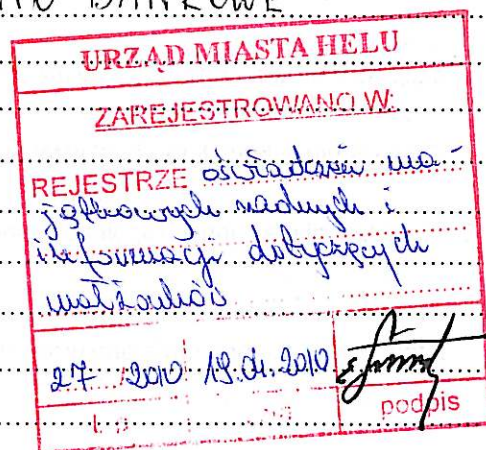 BANKOWE
URZĄD MIASTA HELU
ZAREJESTROWANO W:
REJESTRZE oświadczeń ma-
jątkowych radnych i
informacji dotyczących
małżonków
27 2010 19.04.2010
podpis